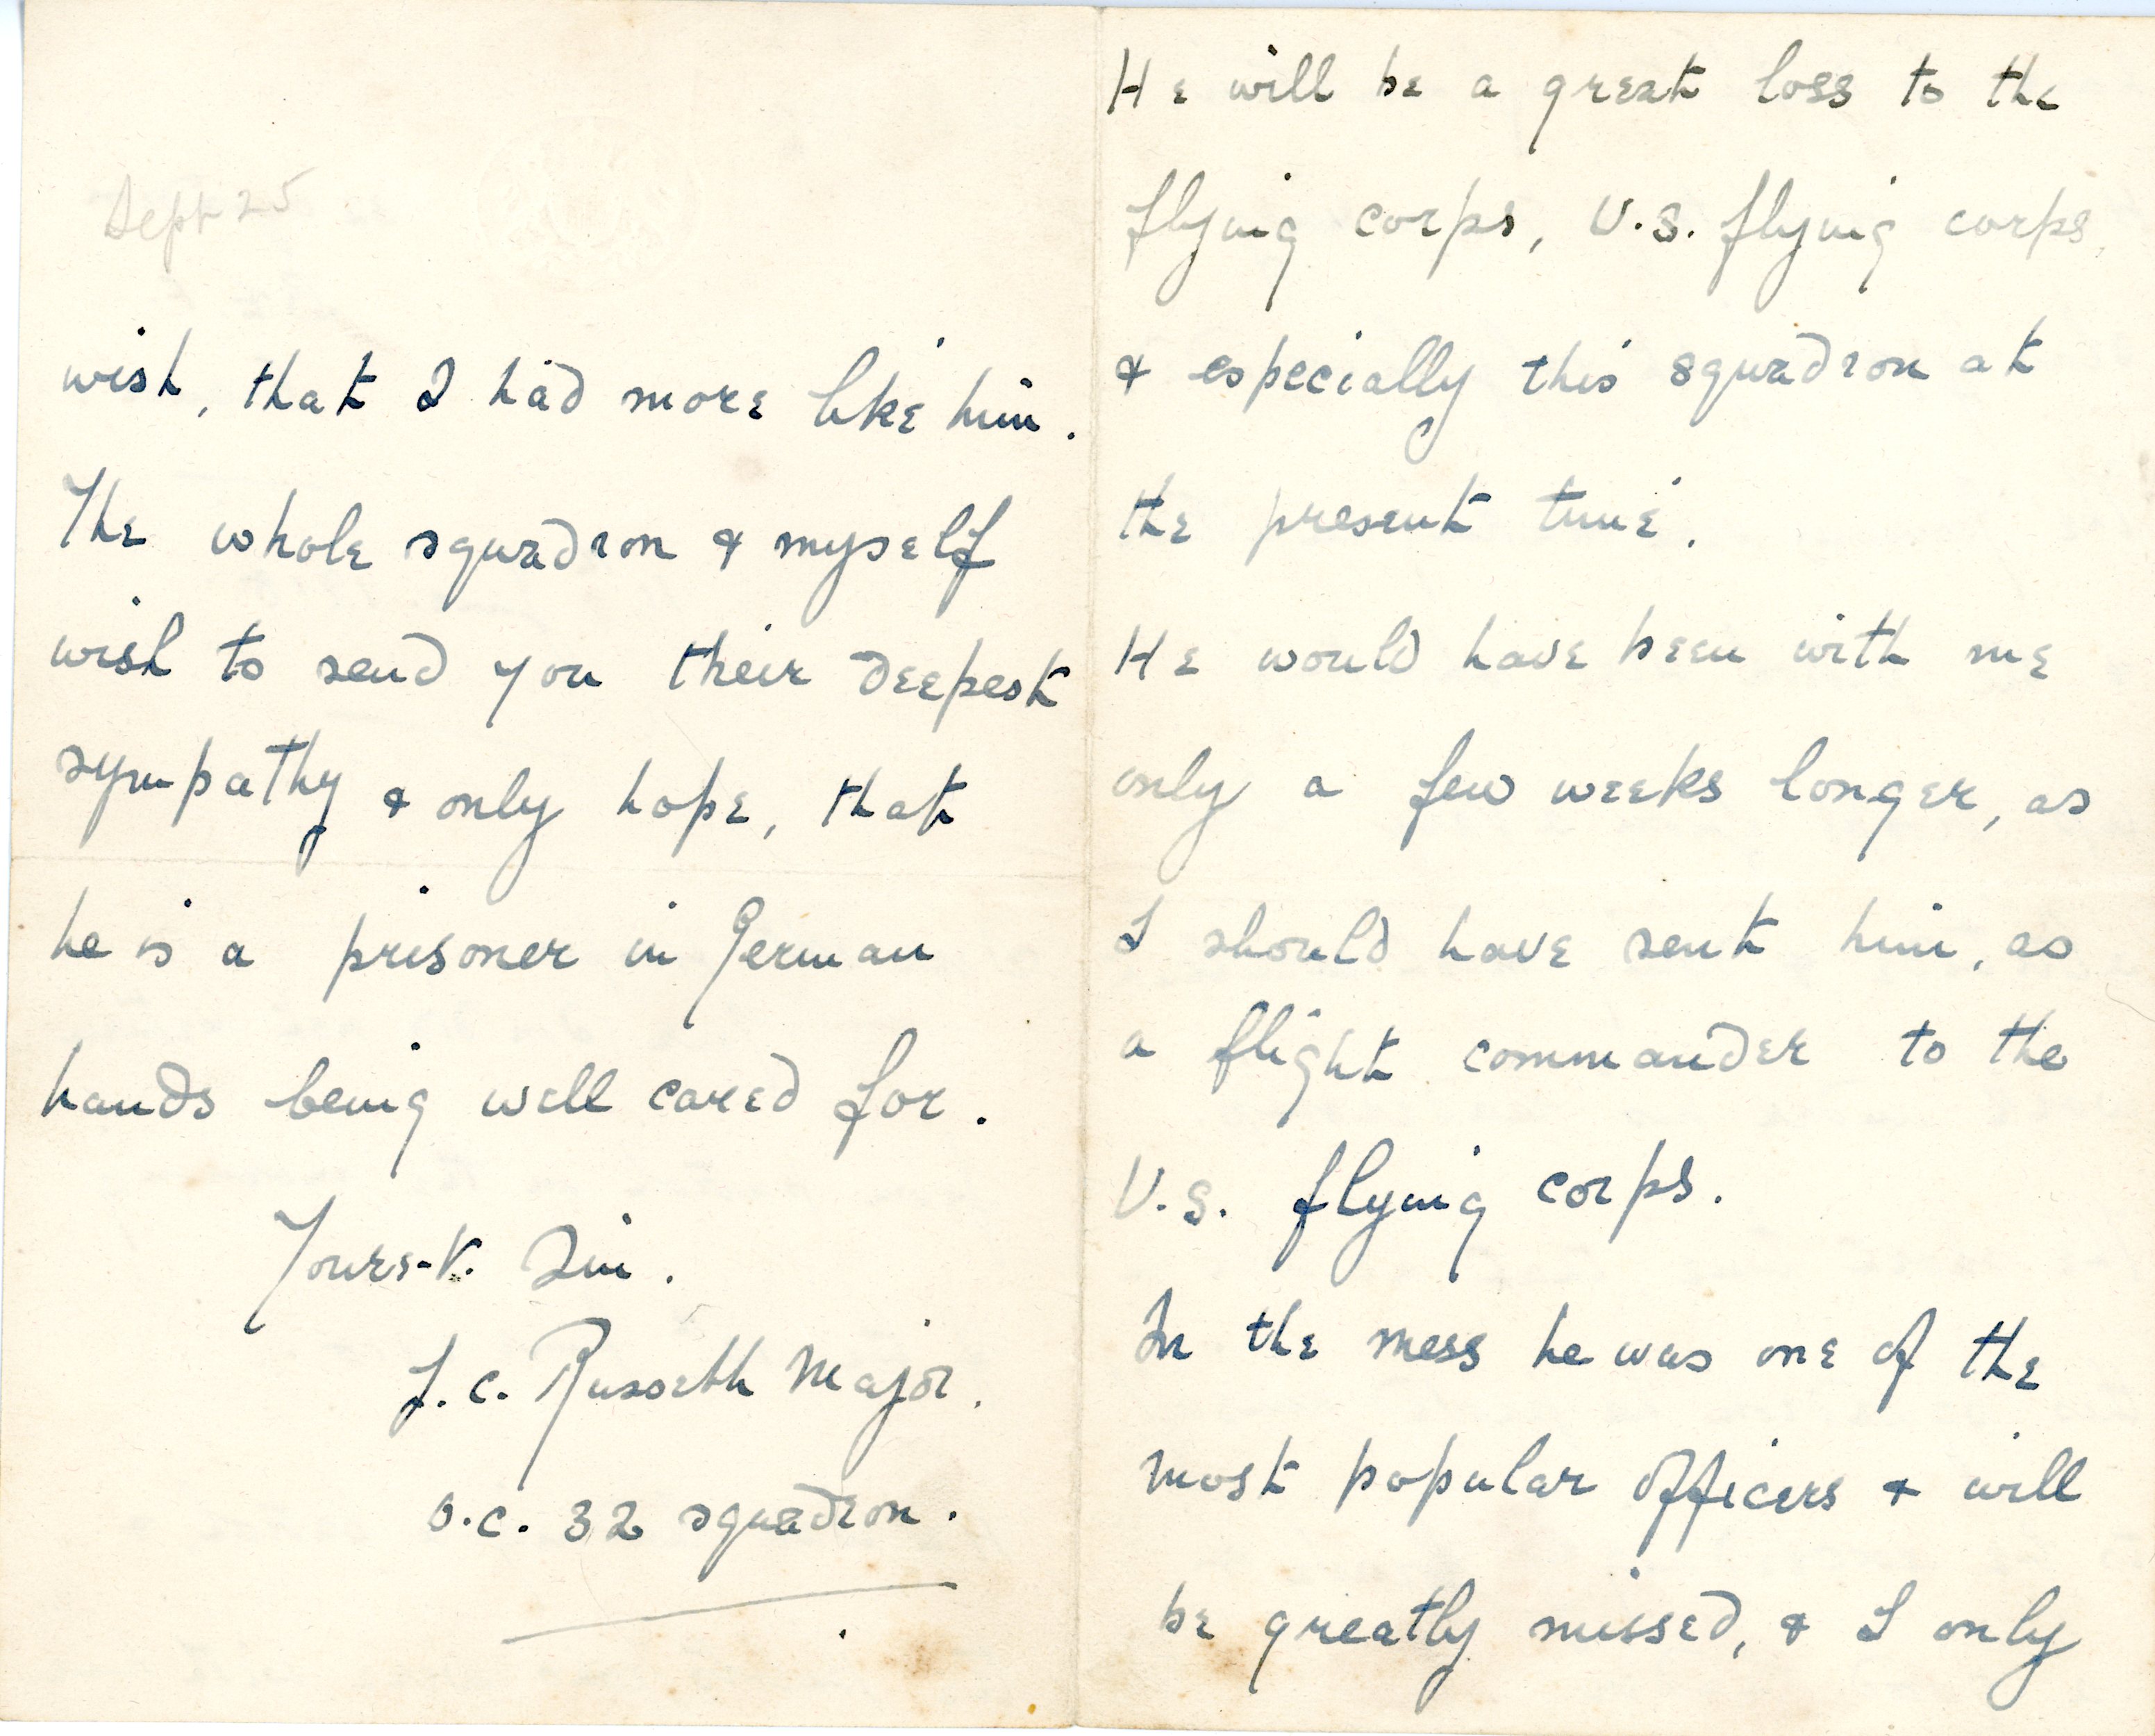 He will be a great loss to the
flying corps, U.S. flying corps,
& especially this squadron at
the present time.
He would have been with me
only a few weeks longer, as
I should have sent him, as
a flight commander to the
U.S. flying corps.
In the mess he was one of the
most popular officers & will
be greatly missed, & I only
Sept 25
wish, that I had more like him.
The whole squadron & myself
wish to send you their deepest
sympathy & only hope, that
he is a prisoner in German
hands being well cared for.
Yours-v. Sin.
J. C. Russell Major.
O.C. 32 squadron.